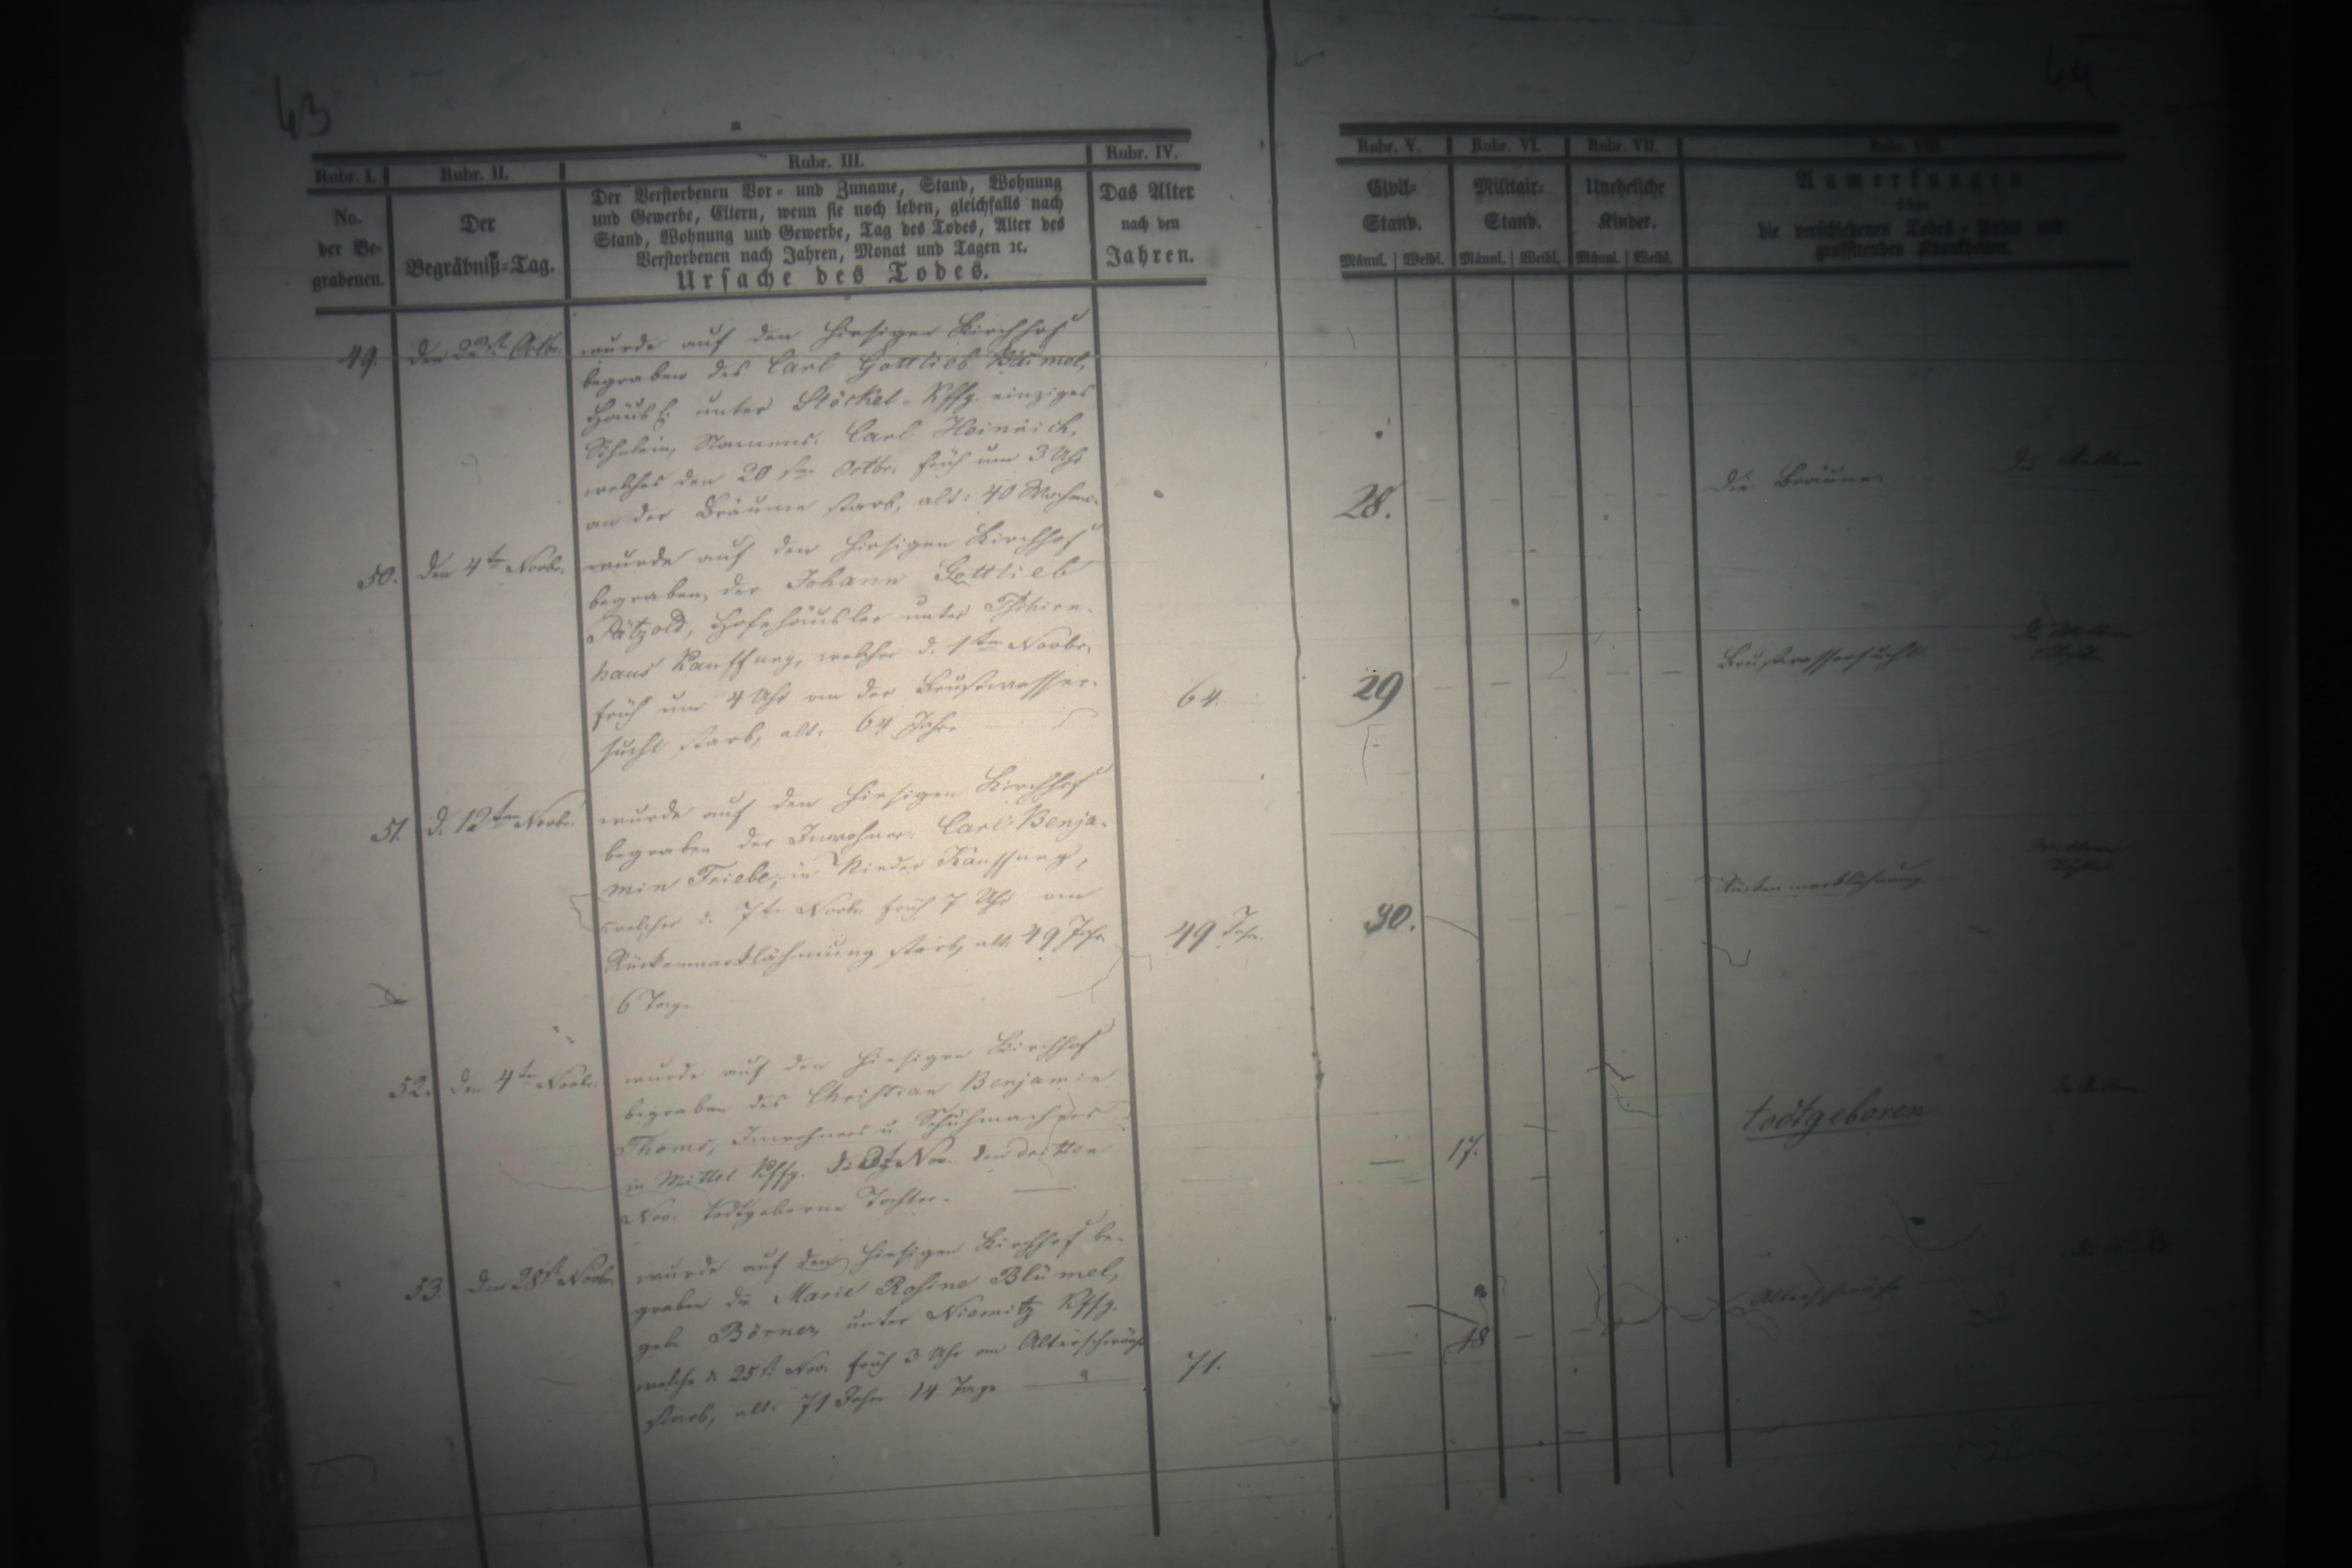 43
44
Rubr. I.
Rubr. II.
Rubr. III.
Rubr. IV.
Rubr. V.
Rubr. VI.
Rubr. VII.
Rubr. VIII.
No.
der Be-
grabenen.
Der
Begräbniß-Tag.
Der Verstorbenen Vor- und Zuname, Stand, Wohnung
und Gewerbe, Eltern, wenn sie noch leben, gleichfalls nach
Stand, Wohnung und Gewerbe, Tag des Todes, Alter des
Verstorbenen nach Jahren, Monat und Tagen ꝛc.
Ursache des Todes.
Das Alter
nach den
Jahren.
Civil-
Stand.
Männl. Weibl.
Militair-
Stand.
Männl. Weibl.
Uneheliche
Kinder.
Männl. Weibl.
Anmerkungen
über
die verschiedenen Todes-Arten und
grassirenden Krankheiten.
49. den 22st Octbr.
wurde auf den hiesigen Kirchhof
begraben des Carl Gottlieb
Häusl. unter Stöckel-Kffg. einziges
Söhnlein, Namens: Carl Heinrich,
welches den 20sten Octbr. früh um 3 Uhr
an der Bräune starb, alt: 40 Wochen.
28.
die Bräune.
50. den 4ten Novbr.
wurde auf den hiesigen Kirchhof
begraben, der Johann Gottlieb
Pätzold, Hofehäusler unter Tschirn-
haus Kauffung, welcher d. 1ten Novbr.
früh um 4 Uhr an der Brustwasser-
sucht starb, alt: 64 Jahre
64.
29
Brustwassersucht.
51. d. 12ten Novbr.
wurde auf den hiesigen Kirchhof
begraben der Inwohner: Carl Benja-
min Friebe, in Nieder Kauffung,
welcher d. 7te Novbr. früh 7 Uhr an
Rückenmarklähmung starb, alt 49 Jahr
6 Tage
49 Jahr.
30.
Rückenmarklähmung
52. den 4ten Novbr.
wurde auf den hiesigen Kirchhof
begraben des Christian Benjamin
Thoms, Inwohners u. Schuhmachers
in Mittel Kffg. Nov. den dritten
Nov. todtgeborne Tochter.
17.
todtgeboren
53. den 28st Novbr.
wurde auf den hiesigen Kirchhof be-
graben die Marie Rosine Blümel,
geb. Börner, unter Niemitz Kffg.
welche d. 25st. Nov. früh 3 Uhr an Altersschwäche
starb, alt: 71 Jahre 14 Tage
71.
18
Altersschwäche